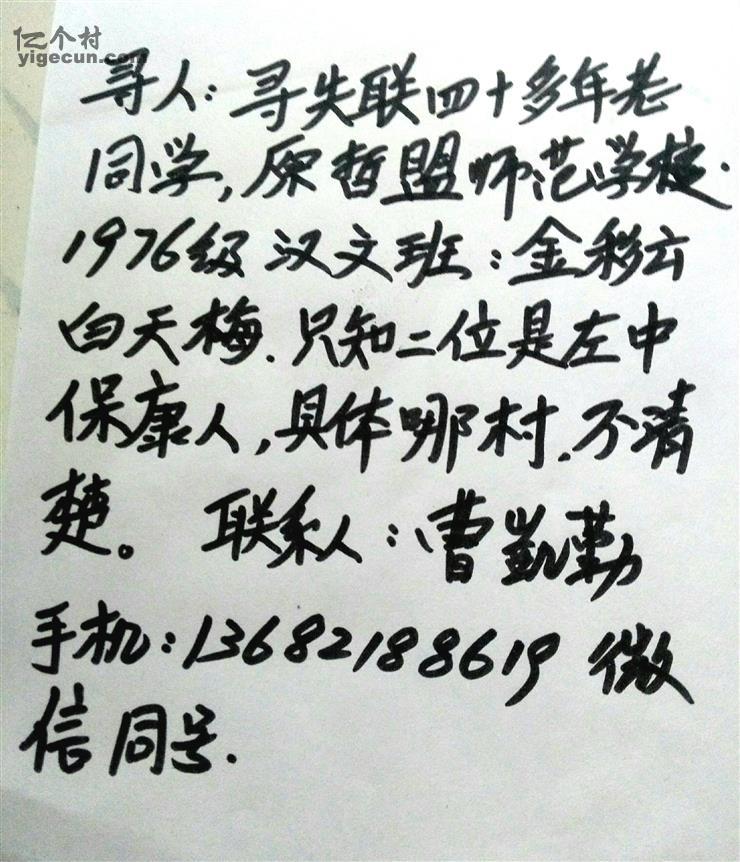 亿个村
yigecun.com
寻人：寻失联四十多年老
同学，原哲盟师范学校.
1976级汉文班：金彩云
白天梅.只知二位是左中
保康人，具体哪村.不清
楚。 联系人：曹凯勤
手机：13682188619 微
信同号.